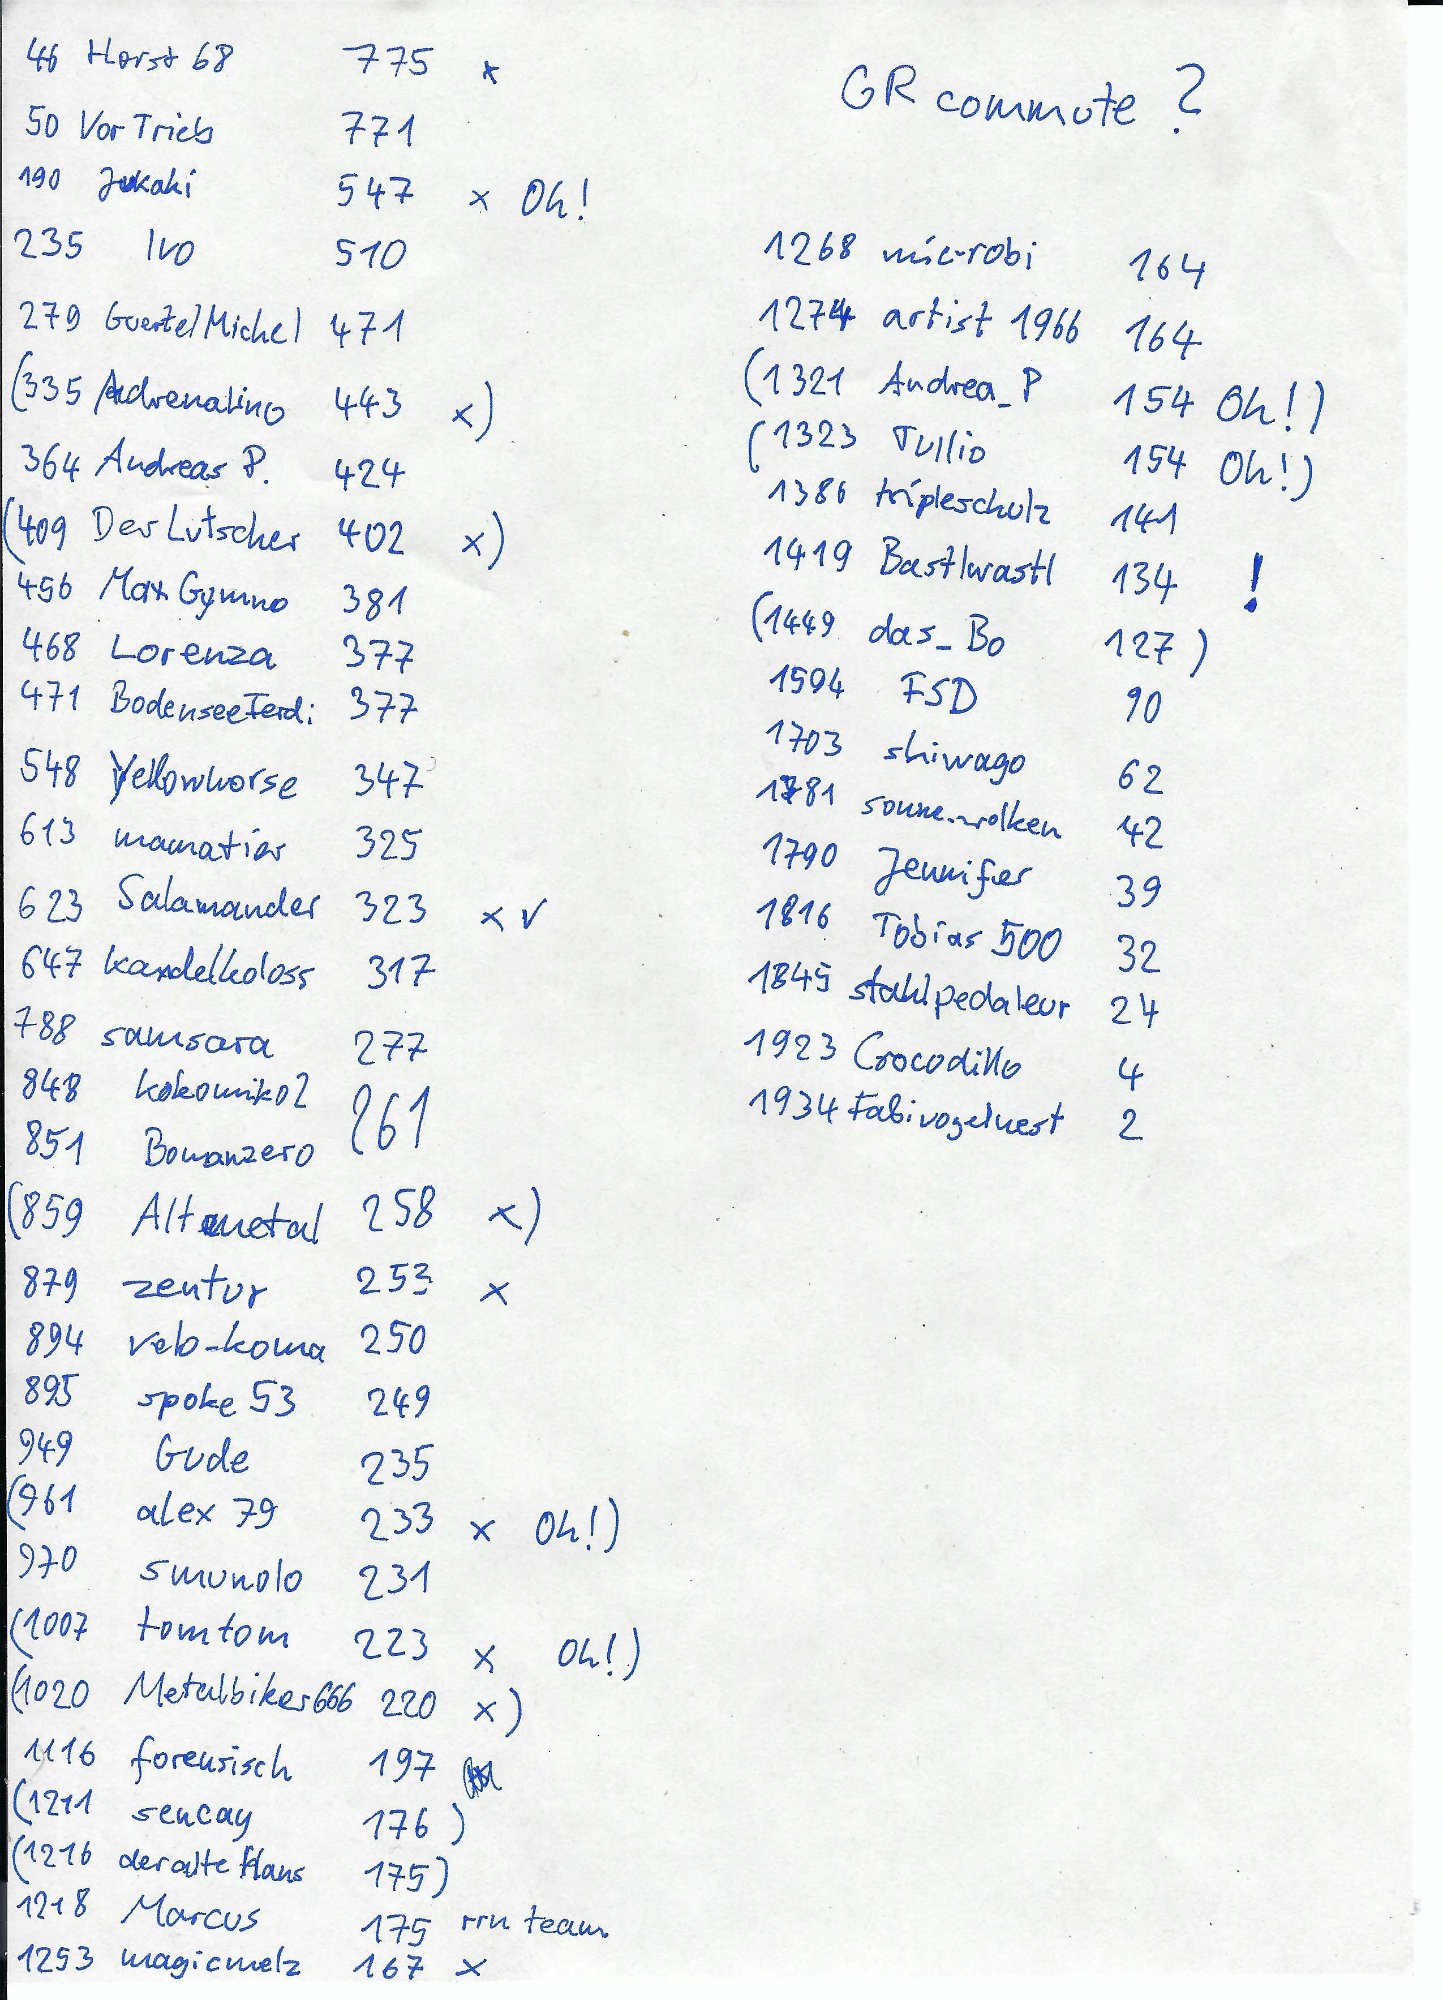 46 Horst 68 775 x
50 VorTrieb 771
190 Jukaki 547 x Oh!
235 Ivo 510
279 GuertelMichel 471
(335 Adrenalino 443 x)
364 Andreas P. 424
(409 Der Lutscher 402 x)
456 Max Gymno 381
468 Lorenza 377
471 BodenseeFerdi 377
548 Yellowhorse 347
613 mamatier 325
623 Salamander 323 x v
647 kandelkoloss 317
788 samsara 277
848 kokomiko2
851 Bomanzero 261
(859 Altmetal 258 x)
879 zentur 253 x
894 velo-koma 250
895 spoke 53 249
949 Gude 235
(961 alex 79 233 x Oh!)
970 smunolo 231
(1007 tomtom 223 x Oh!)
(1020 Metalbiker666 220 x)
1116 forensisch 197
(1211 sencay 176)
(1216 der alte Hans 175)
1218 Marcus 175 rrn team
1253 magicmelz 167 x
GR commute ?
1268 mic-robi 164
1274 artist 1966 164
(1321 Andrea_P 154 Oh!)
(1323 Tullio 154 Oh!)
1386 tripleschulz 141
1419 Bastlwastl 134 !
(1449 das_Bo 127)
1594 FSD 90
1703 shiwago 62
1781 42
1790 Jennifer 39
1816 Tobias 500 32
1845 stahlpedaleur 24
1923 Crocodillo 4
1934 Fabivogelnest 2